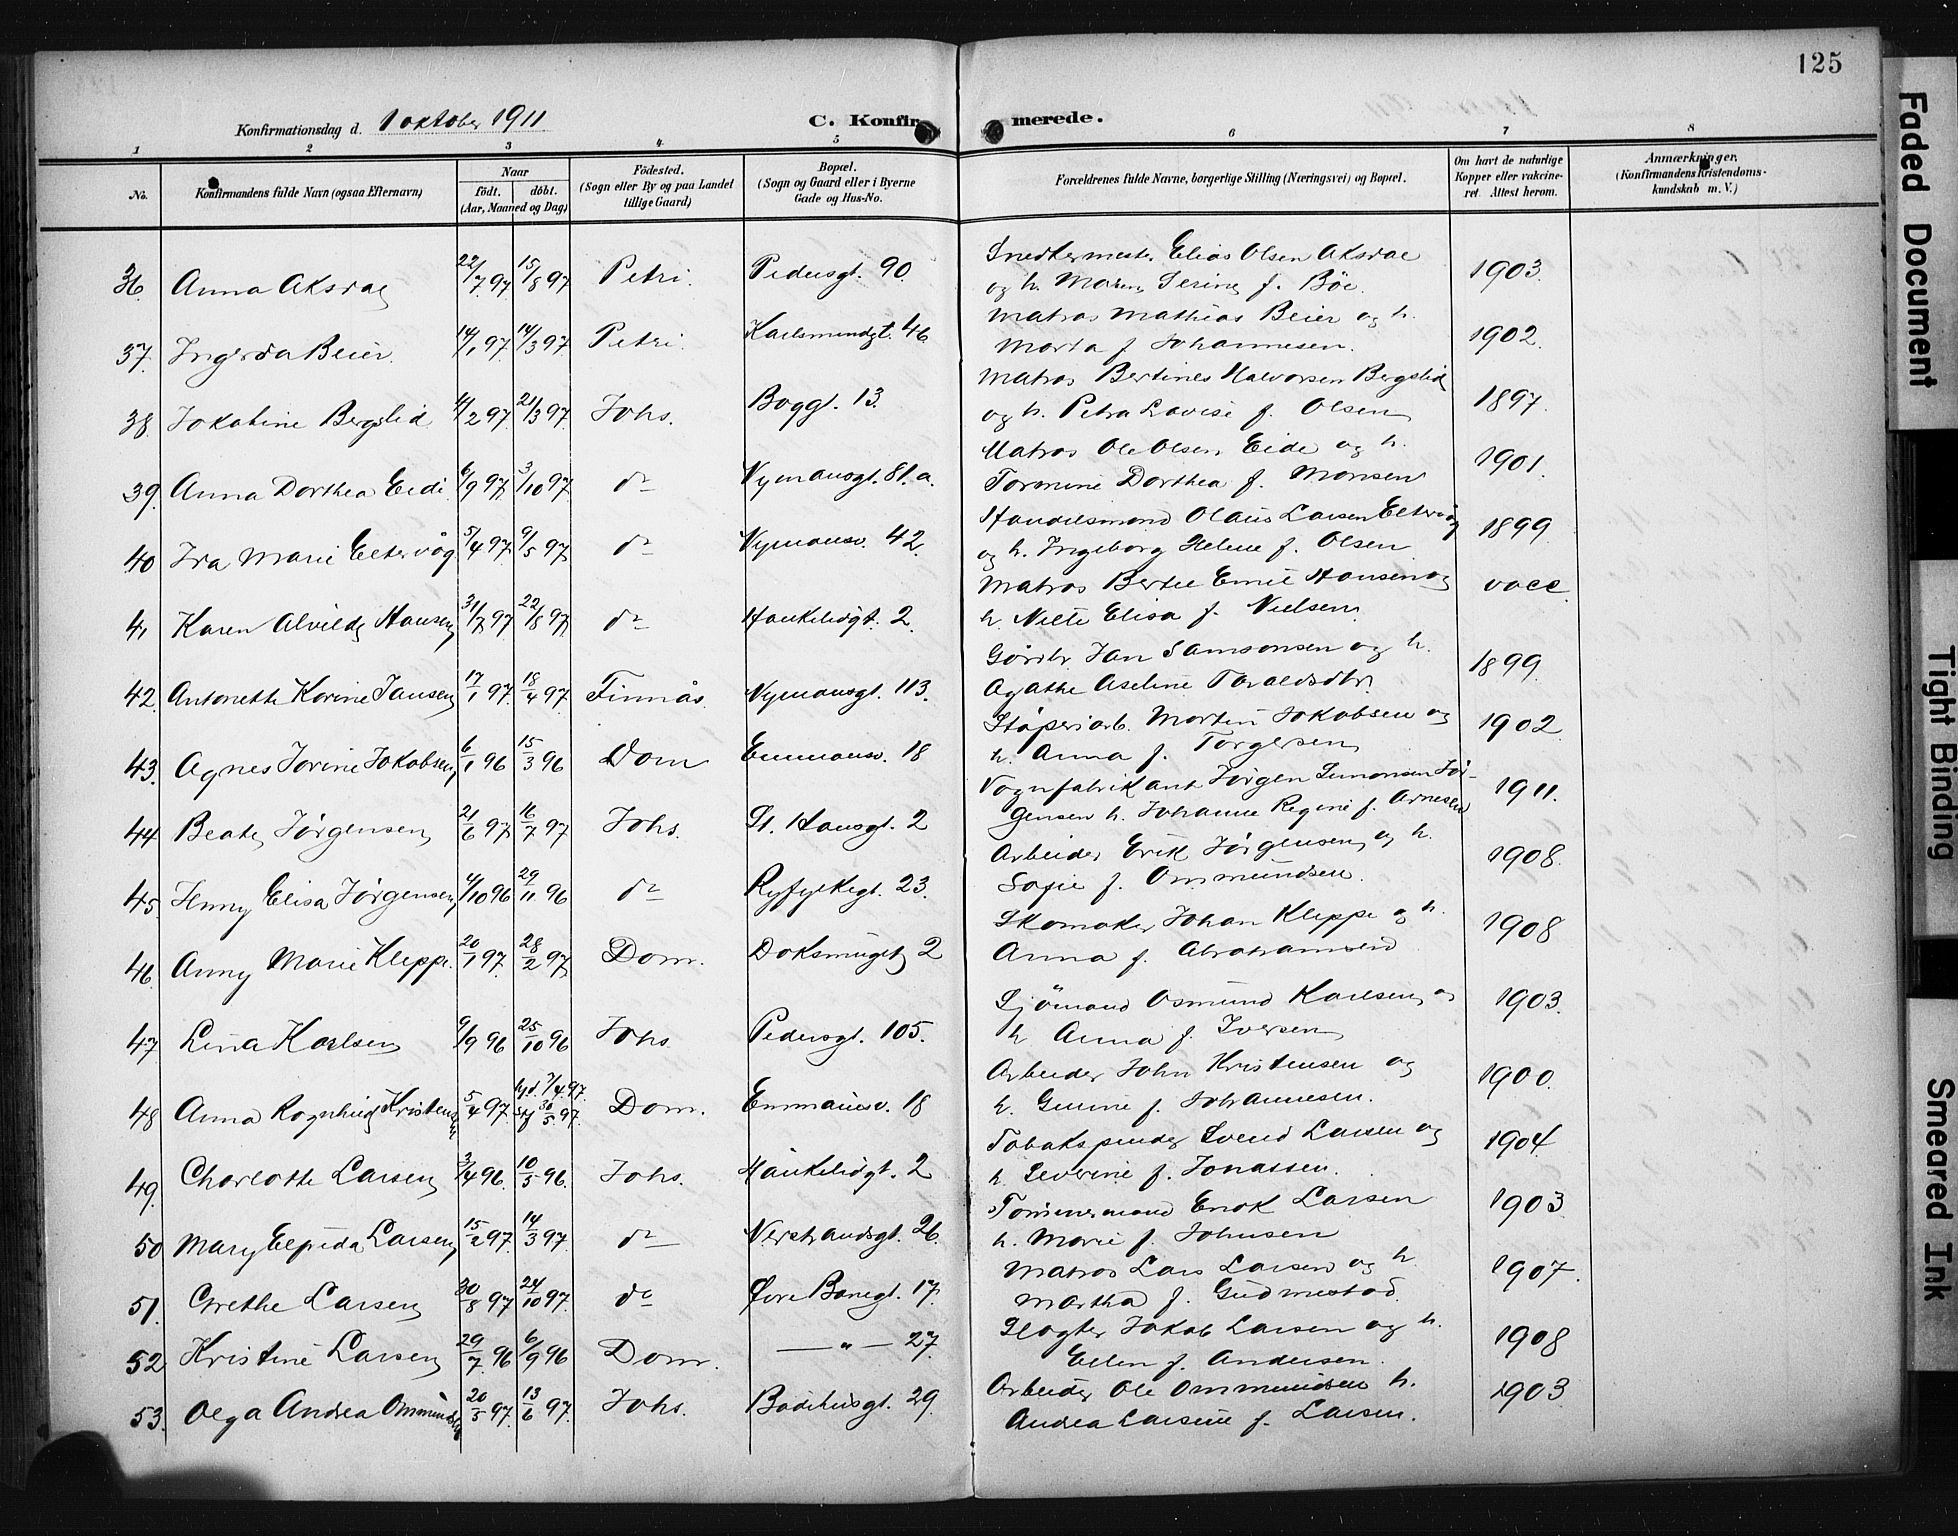 125
Konfirmationsdag d. 1 oktober 1911 C. Konfirmerede.
1 2 3 4 5 6 7 8
No.
Konfirmandens fulde Navn (ogsaa Efternavn)
Naar
født. døbt.
(Aar, Maaned og Dag)
Fødested.
(Sogn eller By og paa Landet
tillige Gaard)
Bopæl.
(Sogn og Gaard eller i Byerne
Gade og Hus-No.
Forældrenes fulde Navne, borgerlige Stilling (Næringsvei) og Bopæl.
Om havt de naturlige
Kopper eller vakcine-
ret. Attest herom.
Anmærkninger.
(Konfirmandens Kristendoms-
kundskab m. V.)
36. Anna Aksdal 22/7 97 15/8 97 Petri. Pedersgt. 90 Snedkermester Elias Olsen Aksdal 1903.
og h. Maren Serine f. Bøe.
37. Ingerda Beier. 14/1 97 14/3 97 Petri. Karlsmindegt. 46 Matros Mathias Beier og h. 1902.
Marta f. Johannesen.
38. Jokabine Bergslid 4/2 97. 21/3 97. Johs. Boggt. 13. Matros Bertines Halvorsen Bergslid 1897.
og h. Petra Lovise f. Olsen
39. Anna Dorthea Eide 6/9 97 3/10 97 do Nymansgt. 81.a. Matros Ole Olsen Eide og h. 1901.
Tormine Dorthea f. Monsen
40 Ira Marie Eltervåg 5/4 97 9/5 97 do Nymansv. 42. Handelsmand Olaus Larsen Eltervåg 1899
og h. Ingeborg Helene f. Olsen
41 Karen Alvilde Hansen 31/7 97 22/8 97 do Haukelidgt. 2. Matros Bertel Emil Hansen og vacc.
h. Nille Elisa f. Nielsen.
42. Antonette Karine Jansen 17/1 97. 18/4 97. Finnås. Nymansgt. 113. Gårdbr. Jan Samsonsen og h. 1899.
Agathe Aseline Taraldsdtr.
43. Agnes Jorine Jokobsen 6/1 96 15/3 96 Dom Emmausv. 18 Støperiarb. Morten Jokobsen og 1902
h. Anna f. Torgersen
44. Beate Jørgensen 21/6 97 16/7 97 Johs. St. Hansgt. 2 Vognfabrikant Jørgen Simonsen Jør- 1911.
gensen h. Johanne Regine f. Arnesen
45. Jenny Elisa Jørgensen 4/10 96 29/11 96 do Ryfylkegt. 23. Arbeider Erik Jørgensen og h. 1908.
Sofie f. Ommundsen.
46. Anny Marie Kleppe. 20/1 97. 28/2 97 Dom. Doksmuget 2 Skomaker Johan Kleppe og h. 1908
Anna f. Abrahamsen
47. Lina Karlsen 9/9 96 25/10 96 Johs. Pedersgt. 105. Sjømand Osmund Karlsen og 1903.
h Anna f. Iversen
48 Anna Ragnhild Kristensen 5/4 97. hjd. 7/4 97. 30/5 97. Dom. Emmausv. 18 Arbeider John Kristensen og 1900.
h. Gurine f. Johannesen.
49. Charlotte Larsen 3/4 96. 10/5 96. Johs. Haukelidgt. 2 Tobakspinder Svend Larsen og 1904
h. Severine f. Jonassen.
50 Mary Elpida Larsen 15/2 97. 14/3 97. do Verstrandsgt. 26. Tømmermand Enok Larsen 1903
h. Marie f. Johnsen
51. Grethe Larsen 30/8 97 24/10 97. do Øvre Banegt. 17. Matros Lars Larsen og h. 1907.
Martha f. Gudmestad.
52 Kristine Larsen 29/7 96 6/9 96 Dom. — " — 27. Slagter Jakob Larsen og h. 1908
Ellen f. Andersen.
53. Olga Andrea Ommundsen 20/5 97. 13/6 97. Johs. Badehusgt. 29. Arbeider Ole Ommundsen h. 1903
Andrea Larsine f. Larsen.
Faded Document
Tight Binding
Smeared Ink